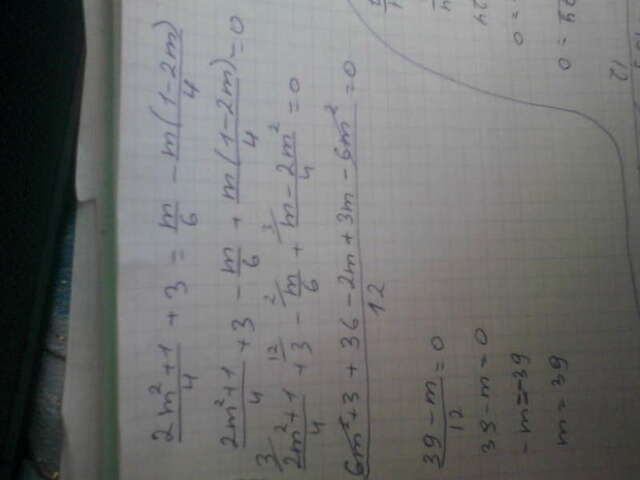 (2m²+1)/4 + 3 = m/6 - m(1-2m)/4
(2m²+1)/4 + 3 - m/6 + m(1-2m)/4 = 0
3/ (2m²+1)/4 + 12/ 3 - 2/ m/6 + 3/ (m-2m²)/4 = 0
(6m²+3+36-2m+3m-6m²)/12 = 0
(39-m)/12 = 0
39-m=0
-m=-39
m=39